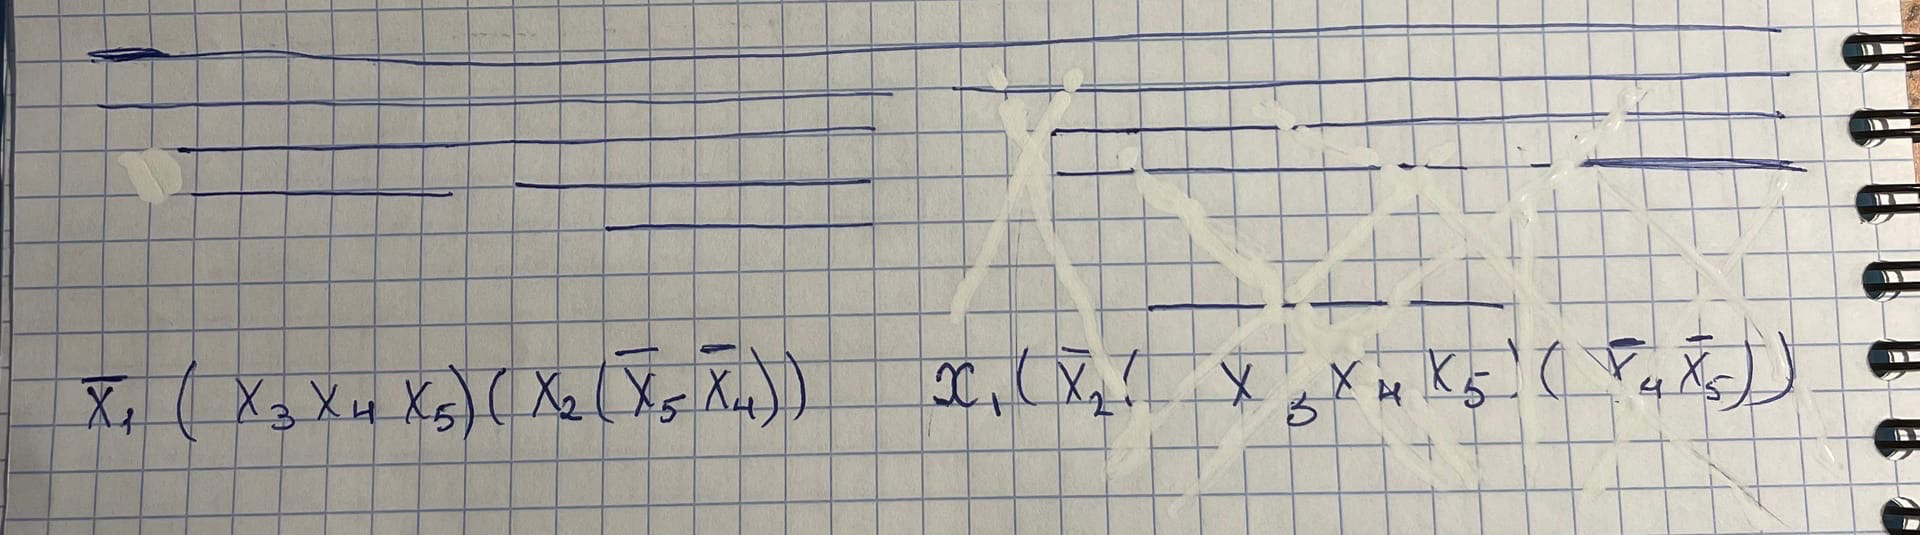 x̄₁ ( x₃ x₄ x₅)( x₂ ( x̄₅ x̄₄)) x₁ ( x̄₂( x₃ x₄ x₅) ( x̄₄ x̄₅))